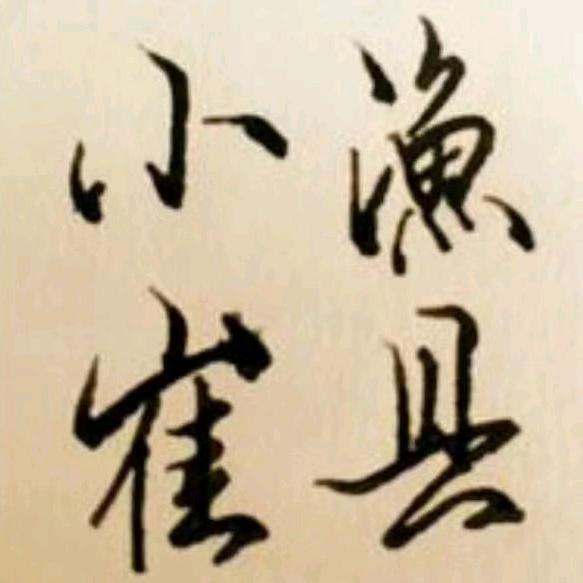 小崔
渔具